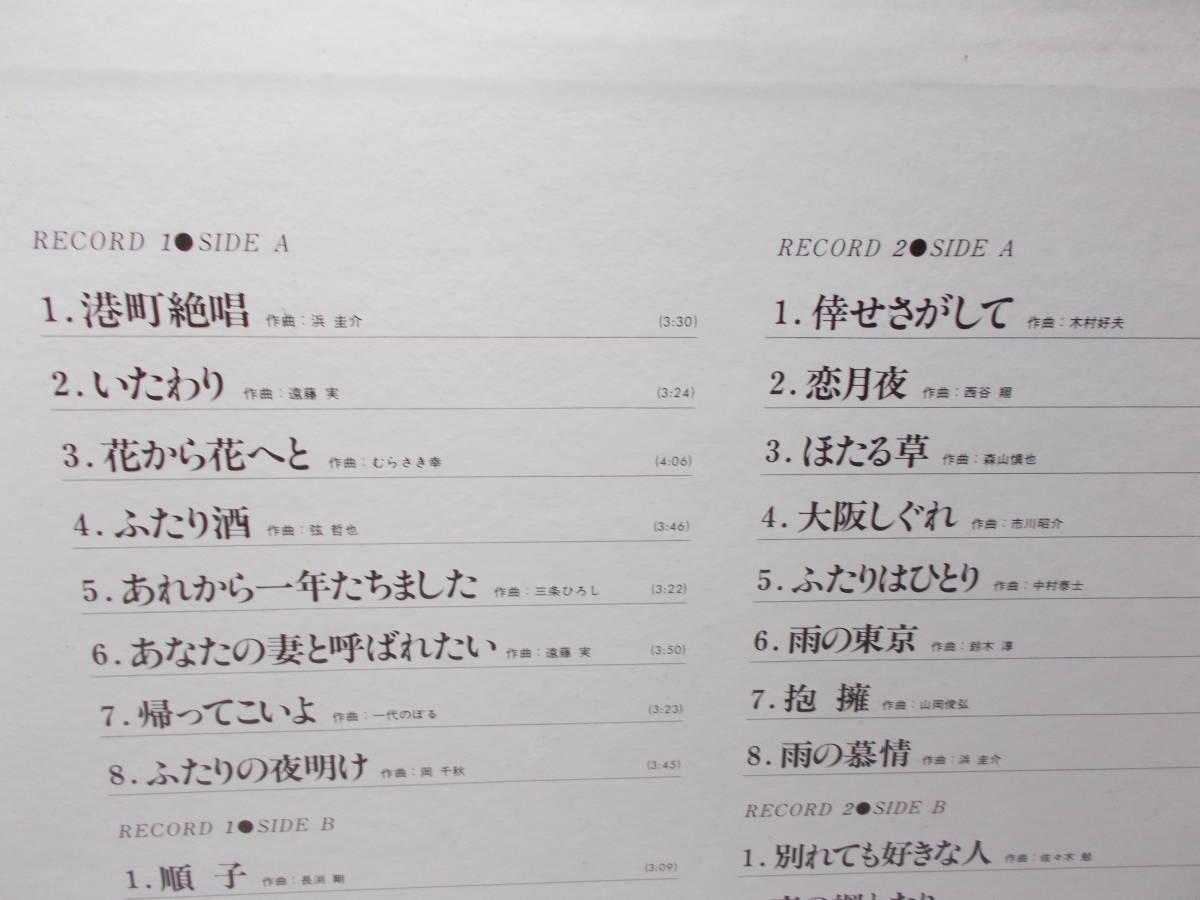 RECORD 1●SIDE A
1.港町絶唱 作曲:浜 圭介 (3:30)
2.いたわり 作曲:遠藤 実 (3:24)
3.花から花へと 作曲:むらさき幸 (4:06)
4.ふたり酒 作曲:弦 哲也 (3:46)
5.あれから一年たちました 作曲:三条ひろし (3:22)
6.あなたの妻と呼ばれたい 作曲:遠藤 実 (3:50)
7.帰ってこいよ 作曲:一代のぼる (3:23)
8.ふたりの夜明け 作曲:岡 千秋 (3:45)
RECORD 1●SIDE B
1.順 子 作曲:長渕 剛 (3:09)
RECORD 2●SIDE A
1.倖せさがして 作曲:木村好夫
2.恋月夜 作曲:西谷 翔
3.ほたる草 作曲:森山慎也
4.大阪しぐれ 作曲:市川昭介
5.ふたりはひとり 作曲:中村泰士
6.雨の東京 作曲:鈴木 淳
7.抱 擁 作曲:山岡俊弘
8.雨の慕情 作曲:浜 圭介
RECORD 2●SIDE B
1.別れても好きな人 作曲:佐々木 勉